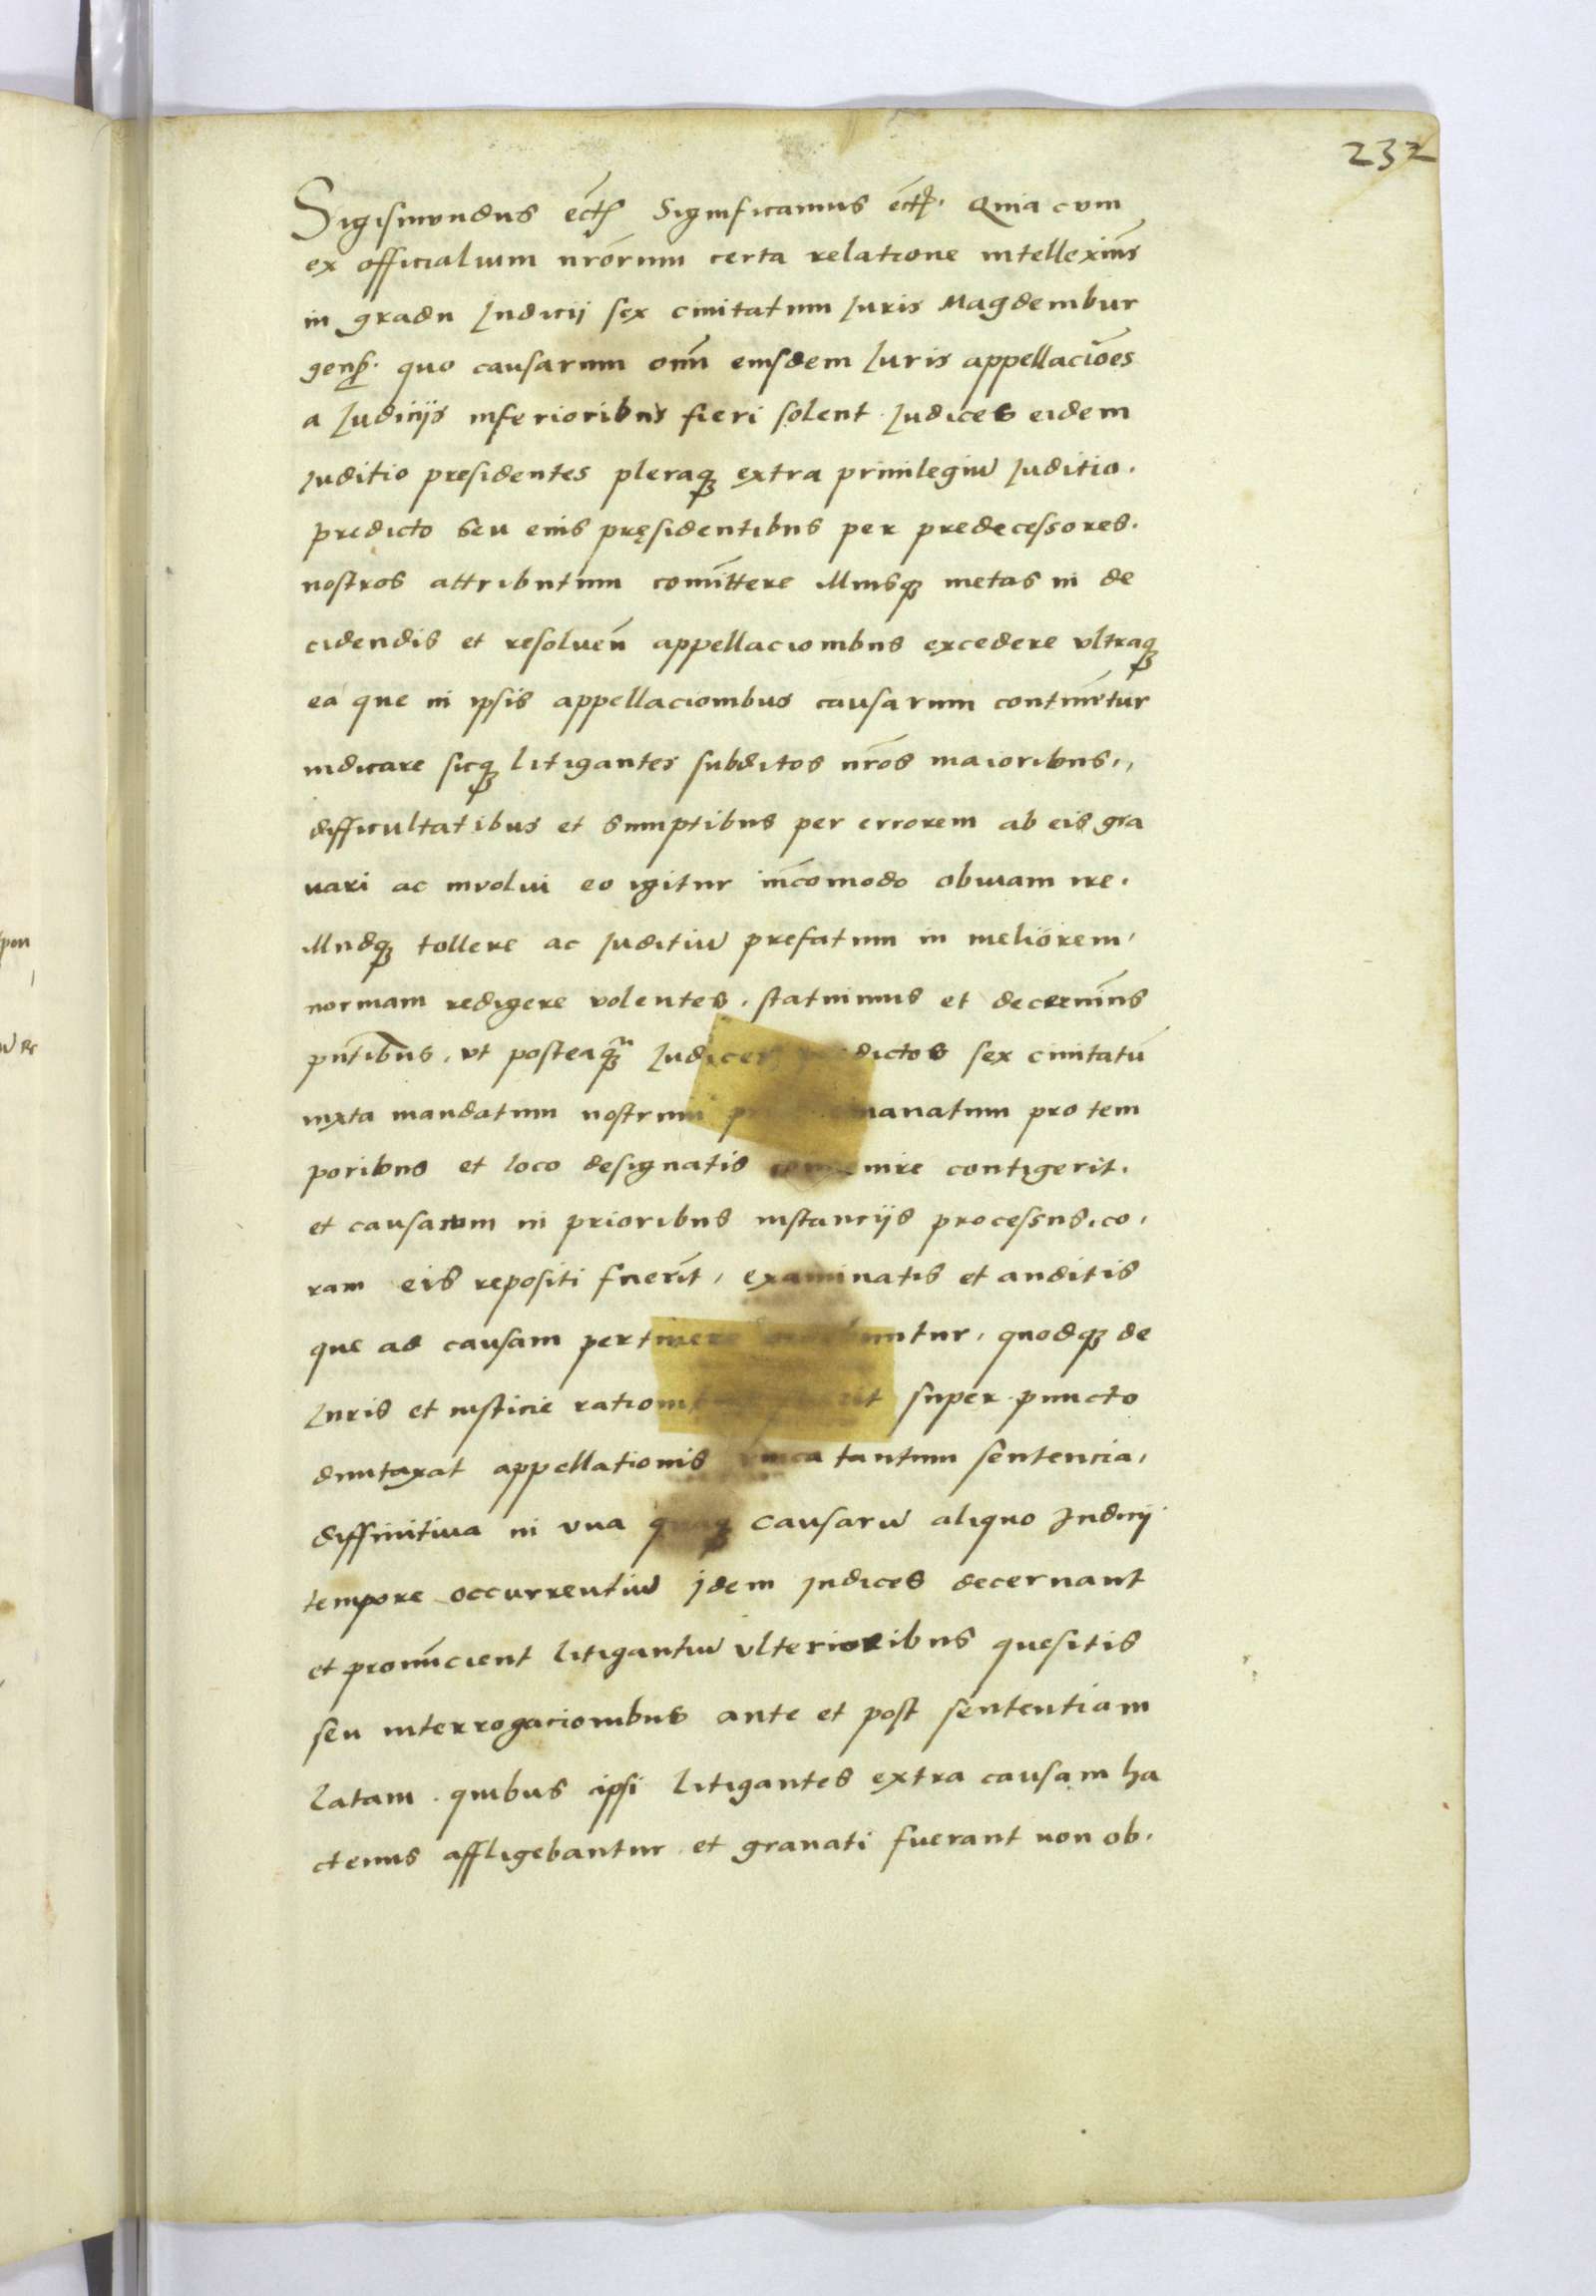 232
Sigismundus ect Significamus ect. Quia cum
ex officialium nrōrum certa relatione intelleximꝰ
in gradu Iudicii sex ciuitatum Iuris Magdembur
gens. quo causarum om̄ eiusdem Iuris appellaciōes
a Iudiciis inferioribus fieri solent Iudices eidem
Iuditio presidentes pleraqꝫ extra priuilegiū Iuditio.
predicto seu eius pręsidentibus per predecessores.
nostros attributum com̄ittere illiusqꝫ metas in de
cidendis et resoluen̄ appellacionibus excedere vltraqꝫ
ea que in ipsis appellacionibus causarum contin̄etur
iudicare sicqꝫ litigantes subditos nr̄os maioribus,,
difficultatibus et sumptibus per errorem ab eis gra
uari ac inuolui eo igitur in̄comodo obuiam ire.
illudqꝫ tollere ac Iuditiū prefatum in meliorem,
normam redigere volentes. statuimus et decernim̄s
pn̄tibus, vt posteaqꝫ Iudices predictos sex ciuitatū
iuxta mandatum nostrum emanatum pro tem
poribus et loco designatis conuenire contigerit.
et causarum in prioribus instanciis processus, co,
ram eis repositi fuerīt, examinatis et auditis
que ad causam pertinere videbuntur, quodqꝫ de
Iuris et iusticie super puncto
duntaxat appellationis vnica tantum sentencia,
diffinitiua in vna quaqꝫ causarū aliquo Iudicij
tempore occurrentiū jdem judices decernant
et pronūcient litigantiū vlterioribus quesitis
seu interrogacionibus ante et post sententiam
latam. quibus ipsi litigantes extra causam ha
ctenus affligebantur et grauati fuerant non ob.